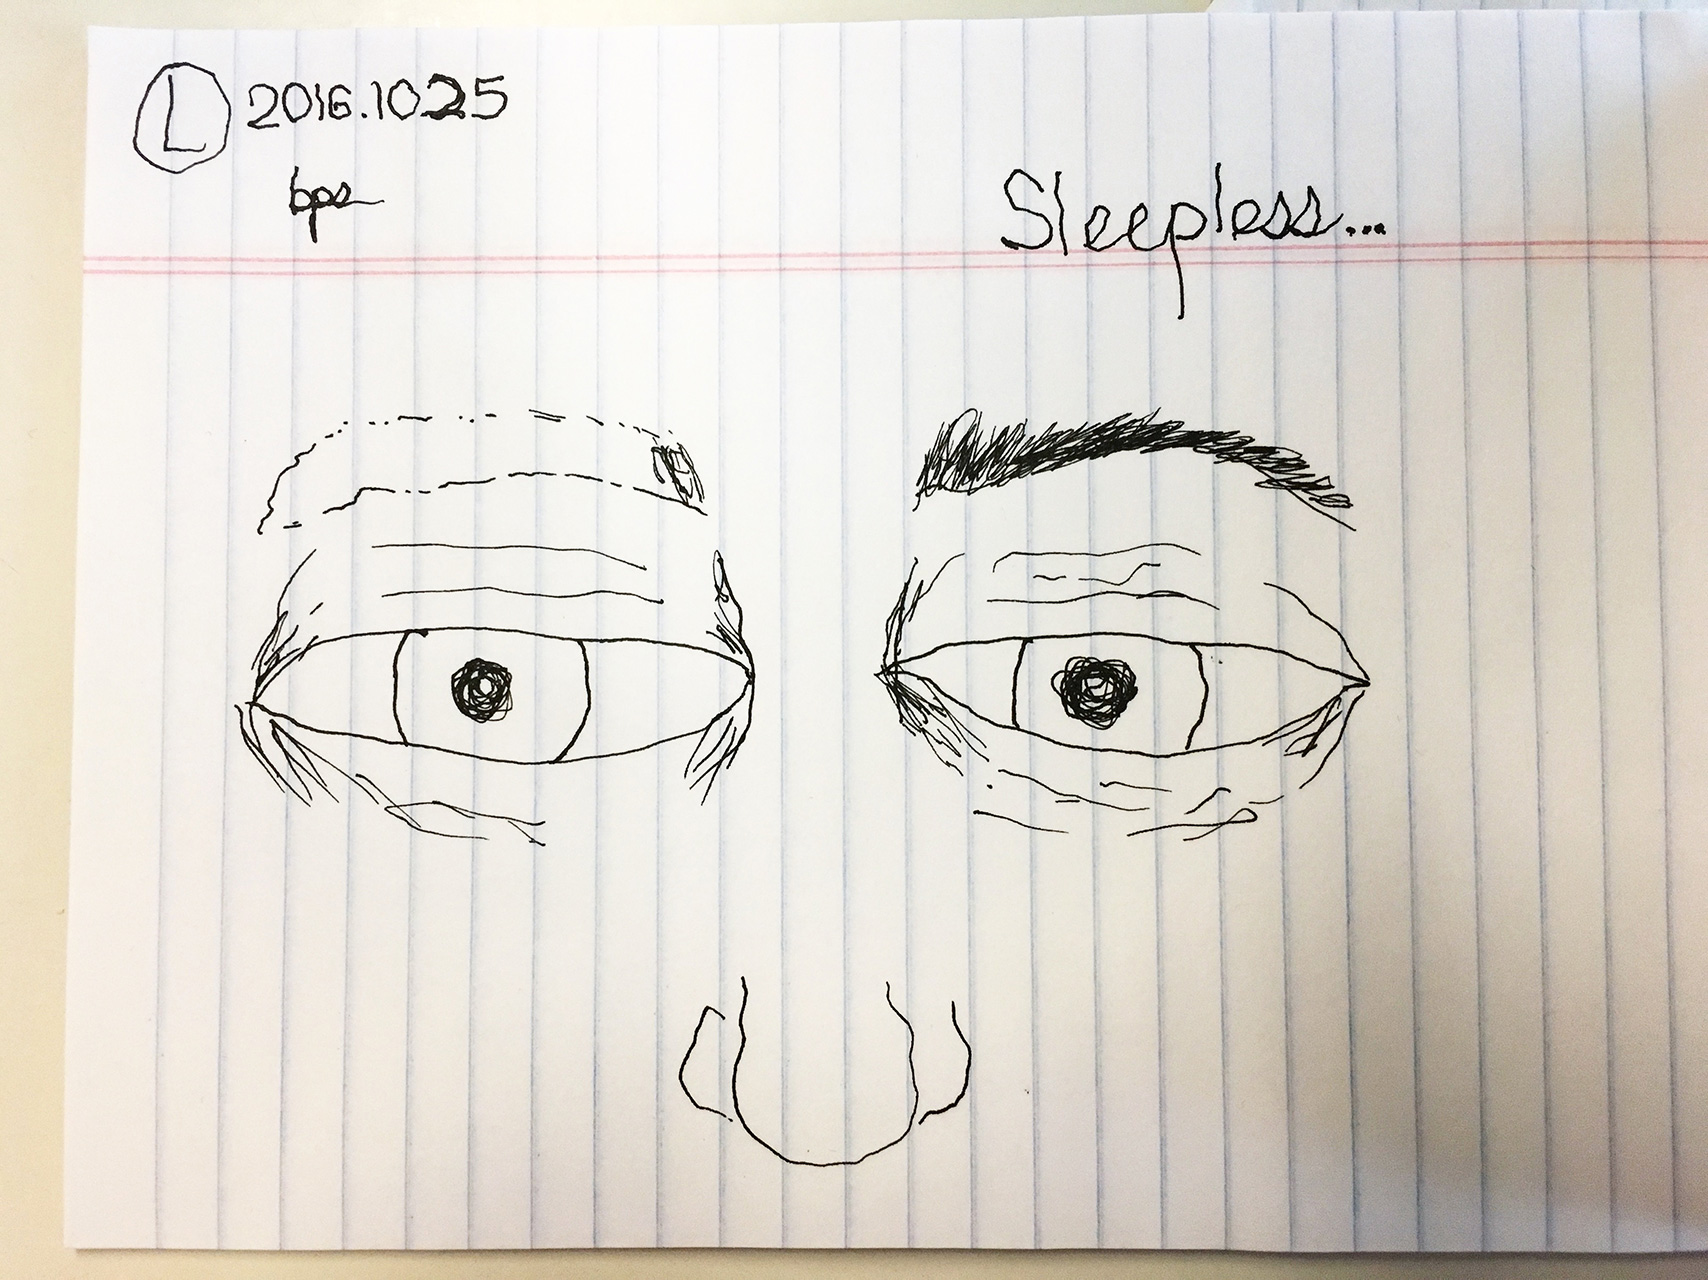 L 2016.1025
bps
Sleepless...